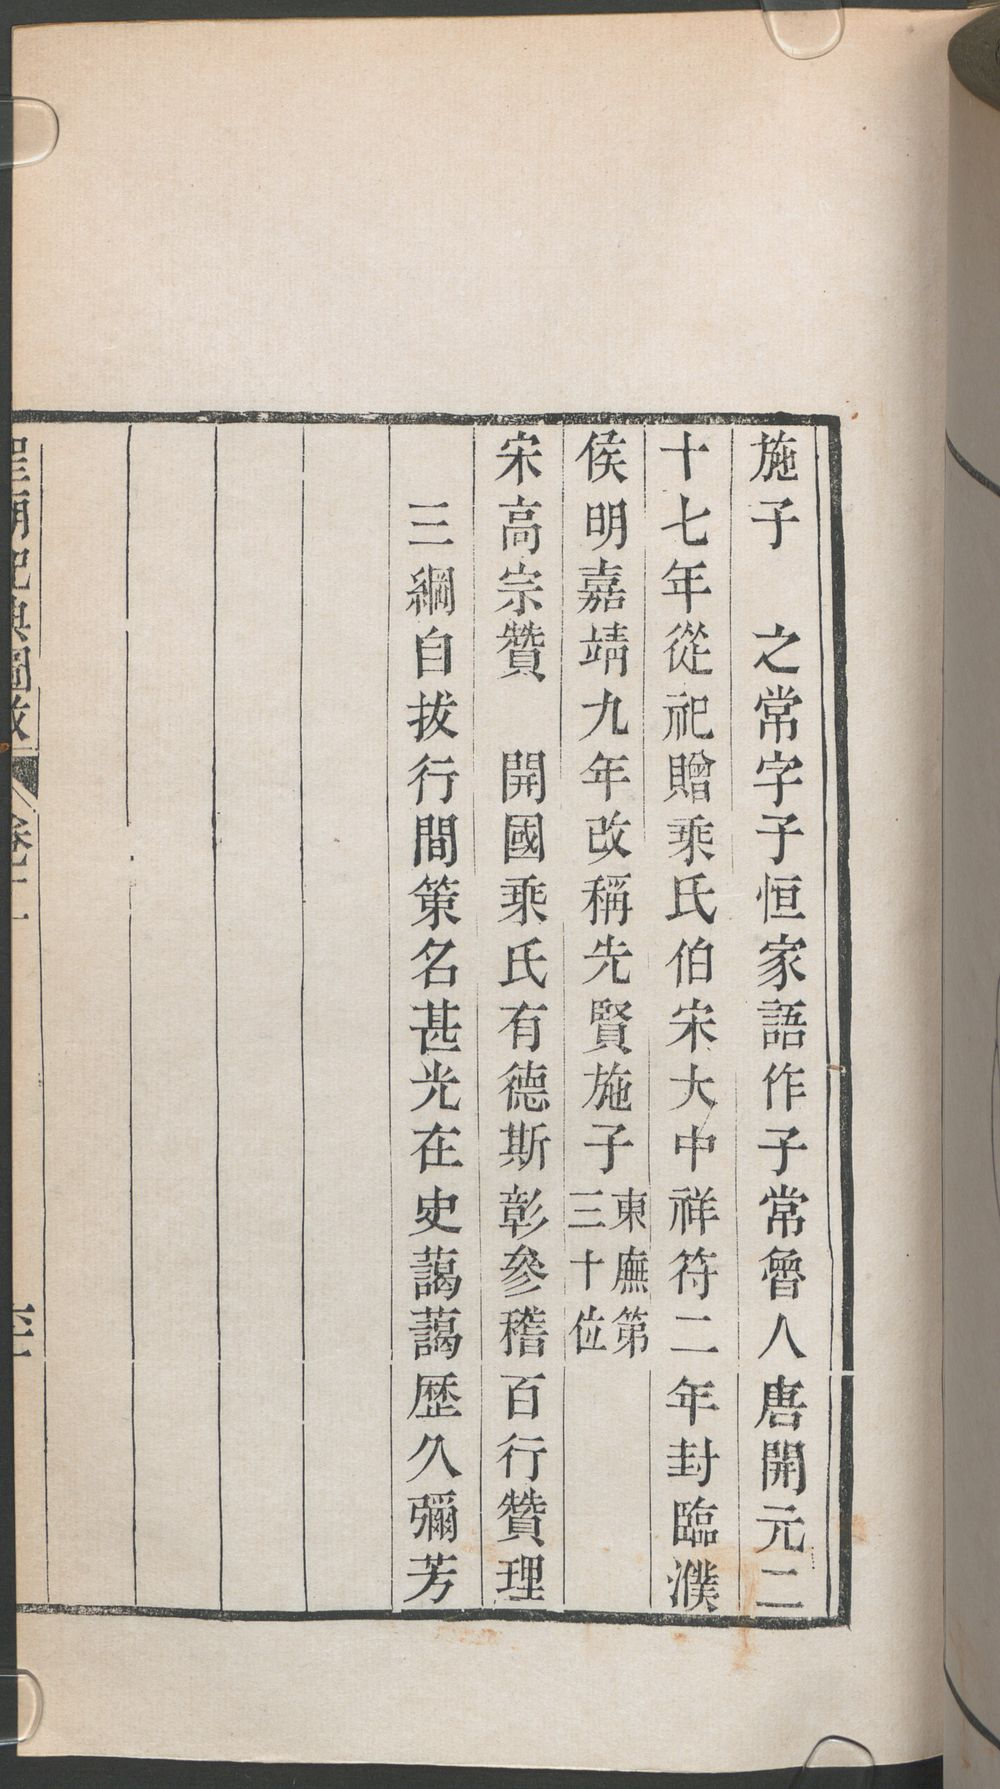 施子　之常字子恒家語作子常魯人唐開元二
十七年從祀贈乘氏伯宋大中祥符二年封臨濮
侯明嘉靖九年改稱先賢施子東廡第三十位
宋高宗贊　開國乘氏有德斯彰參稽百行贊理
三綱自拔行間策名甚光在史藹藹歷久彌芳